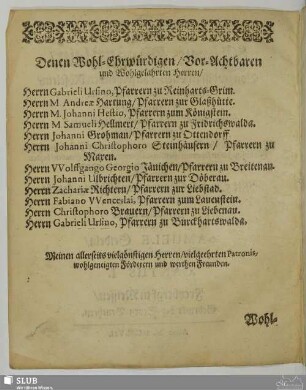 Denen Wohl-Ehrwürdigen / Vor-Achtbaren
und Wohlgelahrten Herren /
Herrn Gabrieli Ursino, Pfarrern zu Reinharts-Grim.
Herrn M. Andreæ Hartung / Pfarrern zur Glaßhütte.
Herrn M. Johanni Hestio, Pfarrern zum Königstein.
Herrn M. Samueli Hellmert / Pfarrern zu Fridrichswalda.
Herrn Johanni Grohman / Pfarrern zu Ottendorff
Herrn Johanni Christophoro Steinhäusern / Pfarrern zu
Maxen.
Herrn VVolffgango Georgio Jänichen / Pfarrern zu Breitenau.
Herrn Johanni Ulbrichten / Pfarrern zur Döberau.
Herrn Zachariæ Richtern / Pfarrern zur Liebstad.
Herrn Fabiano VVenceslai, Pfarrern zum Lauenstein.
Herrn Christophoro Brauern / Pfarrern zu Liebenau.
Herrn Gabrieli Ursino, Pfarrern zu Burckhartswalda.
Meinen allerseits vielgünstigen Herren / vielgeehrten Patronis,
wohlgeneigten Fördern und werthen Freunden.
Wohl-
SLUB